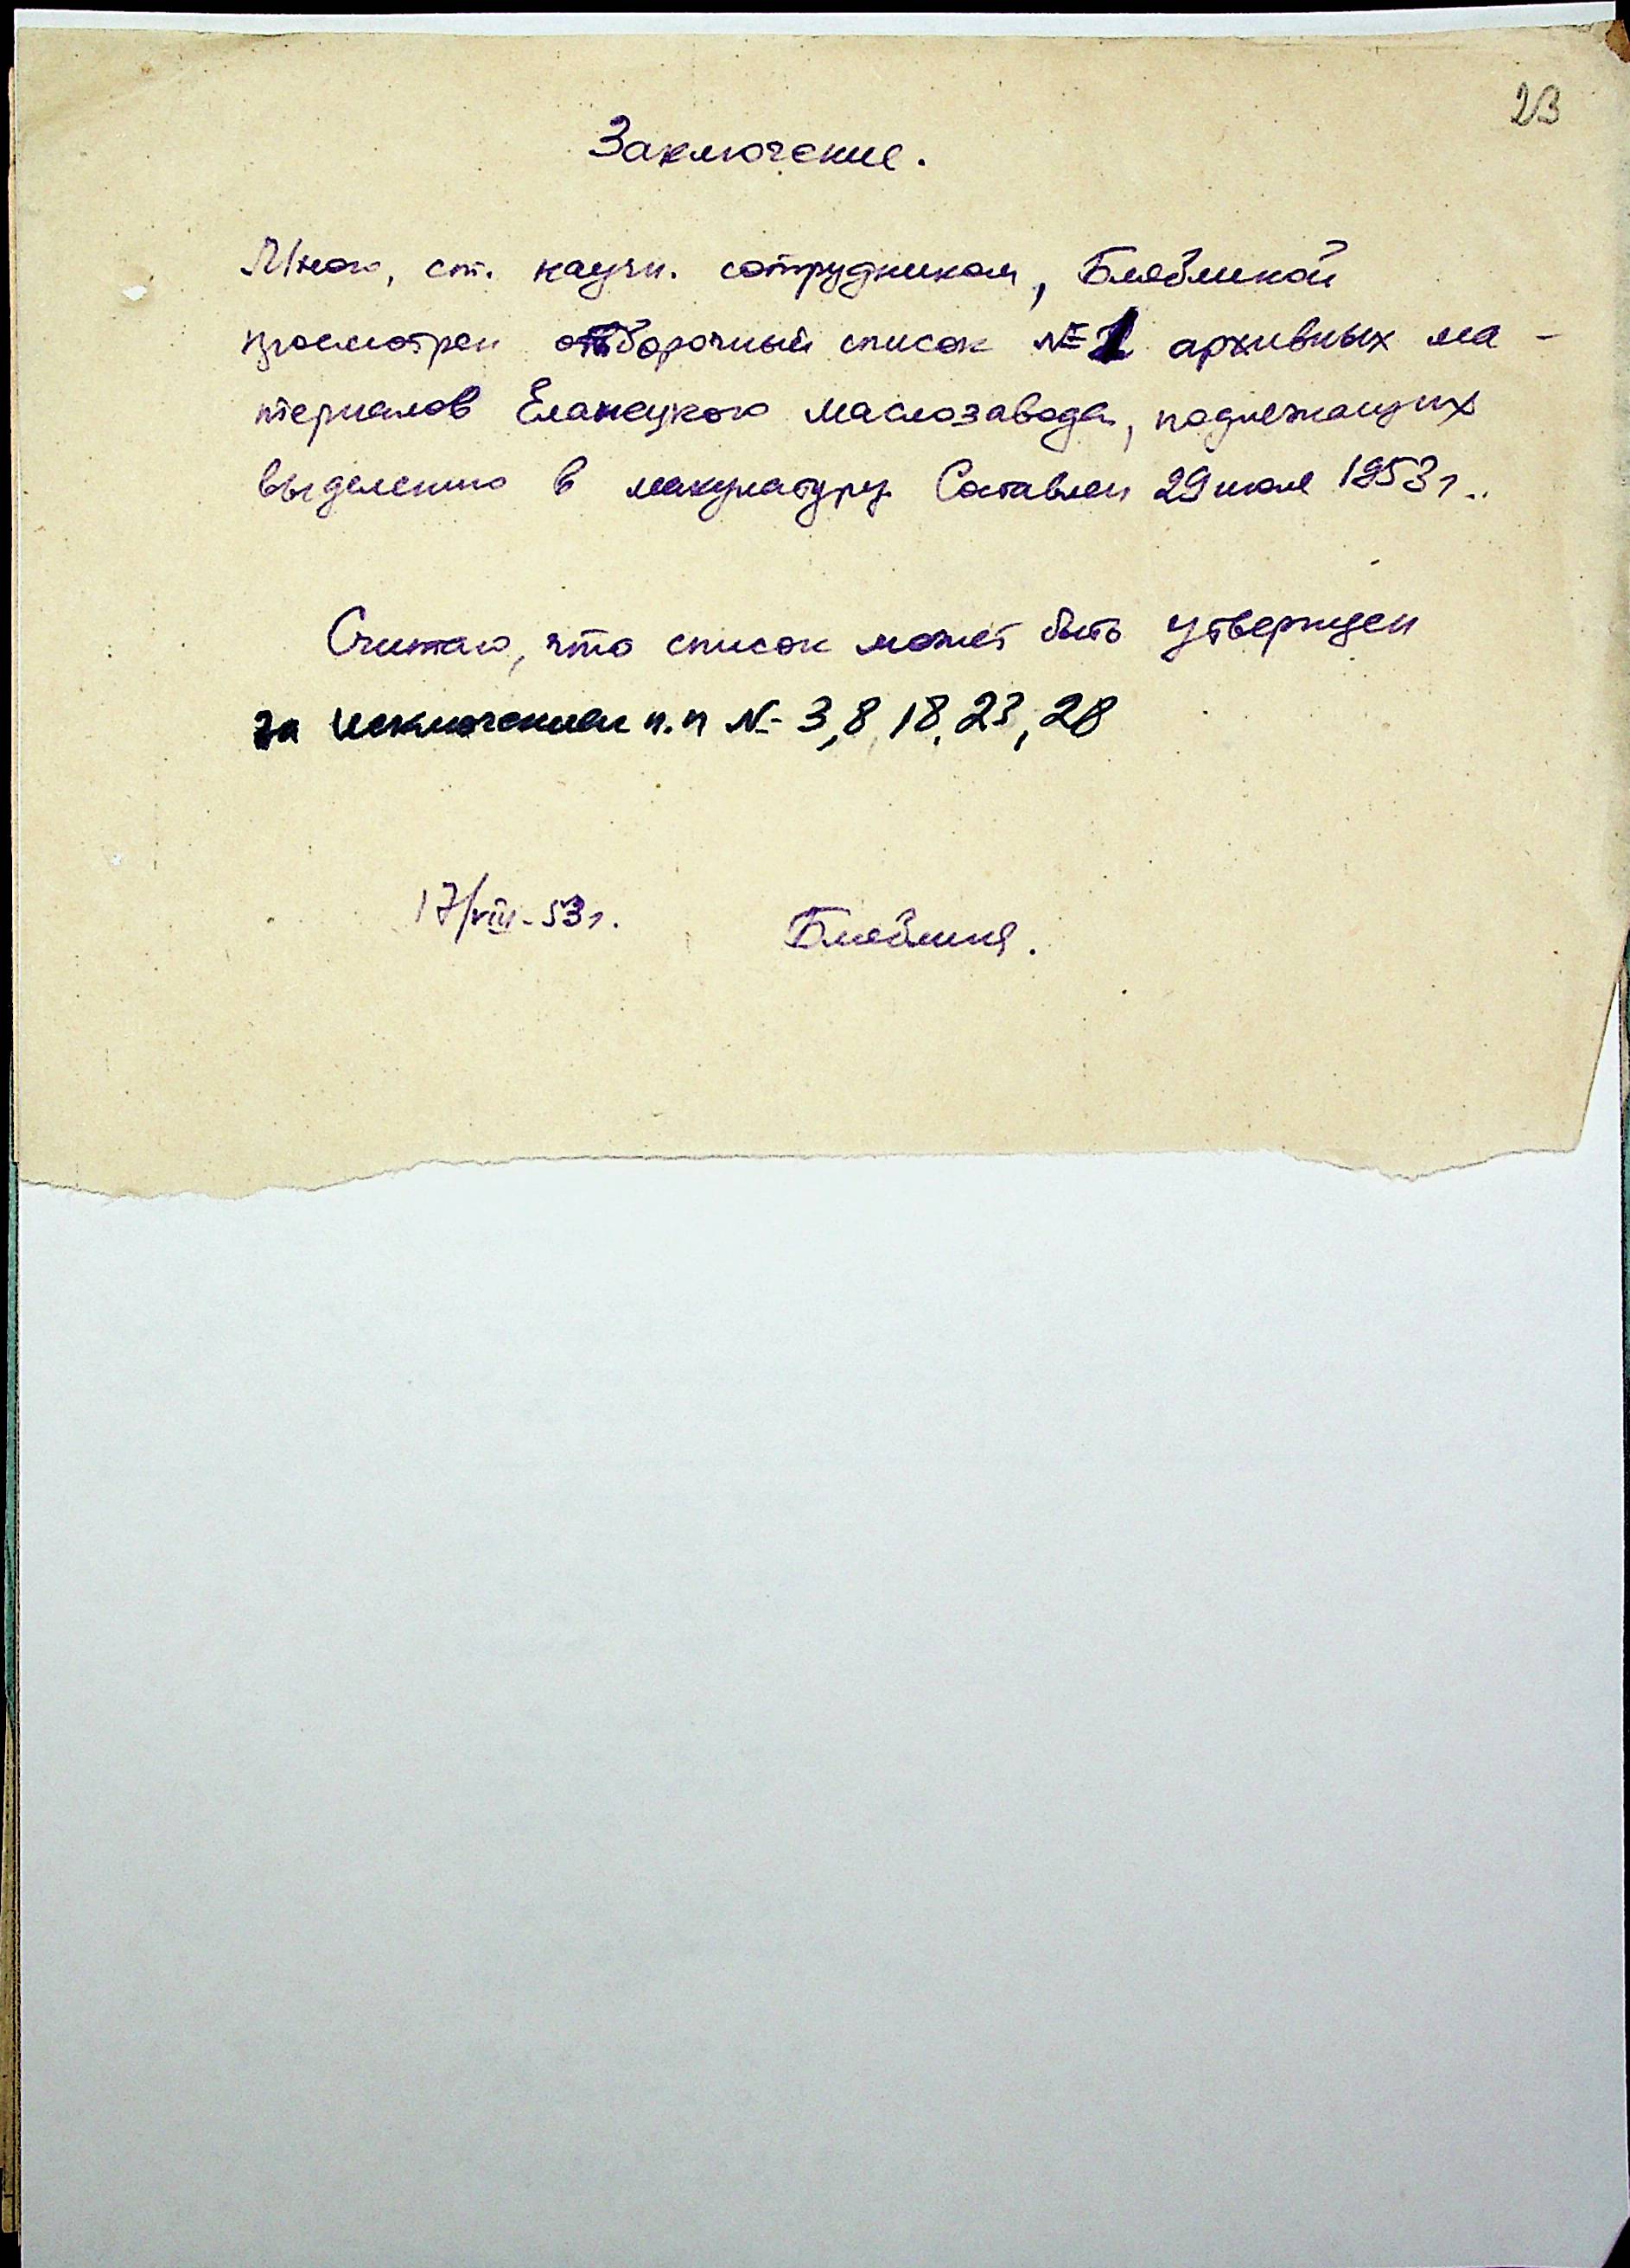 23
Заключение.
Мною, ст. научн. сотрудником, Бляблиной
просмотрен отборочный список № 1 архивных ма-
териалов Еланецкого маслозавода, подлежащих
выделению в макулатуру. Составлен 29 июля 1953 г..
Считаю, что список может быть утвержден
за исключением п.п № 3, 8, 18, 23, 28
17/VIII-53 г.